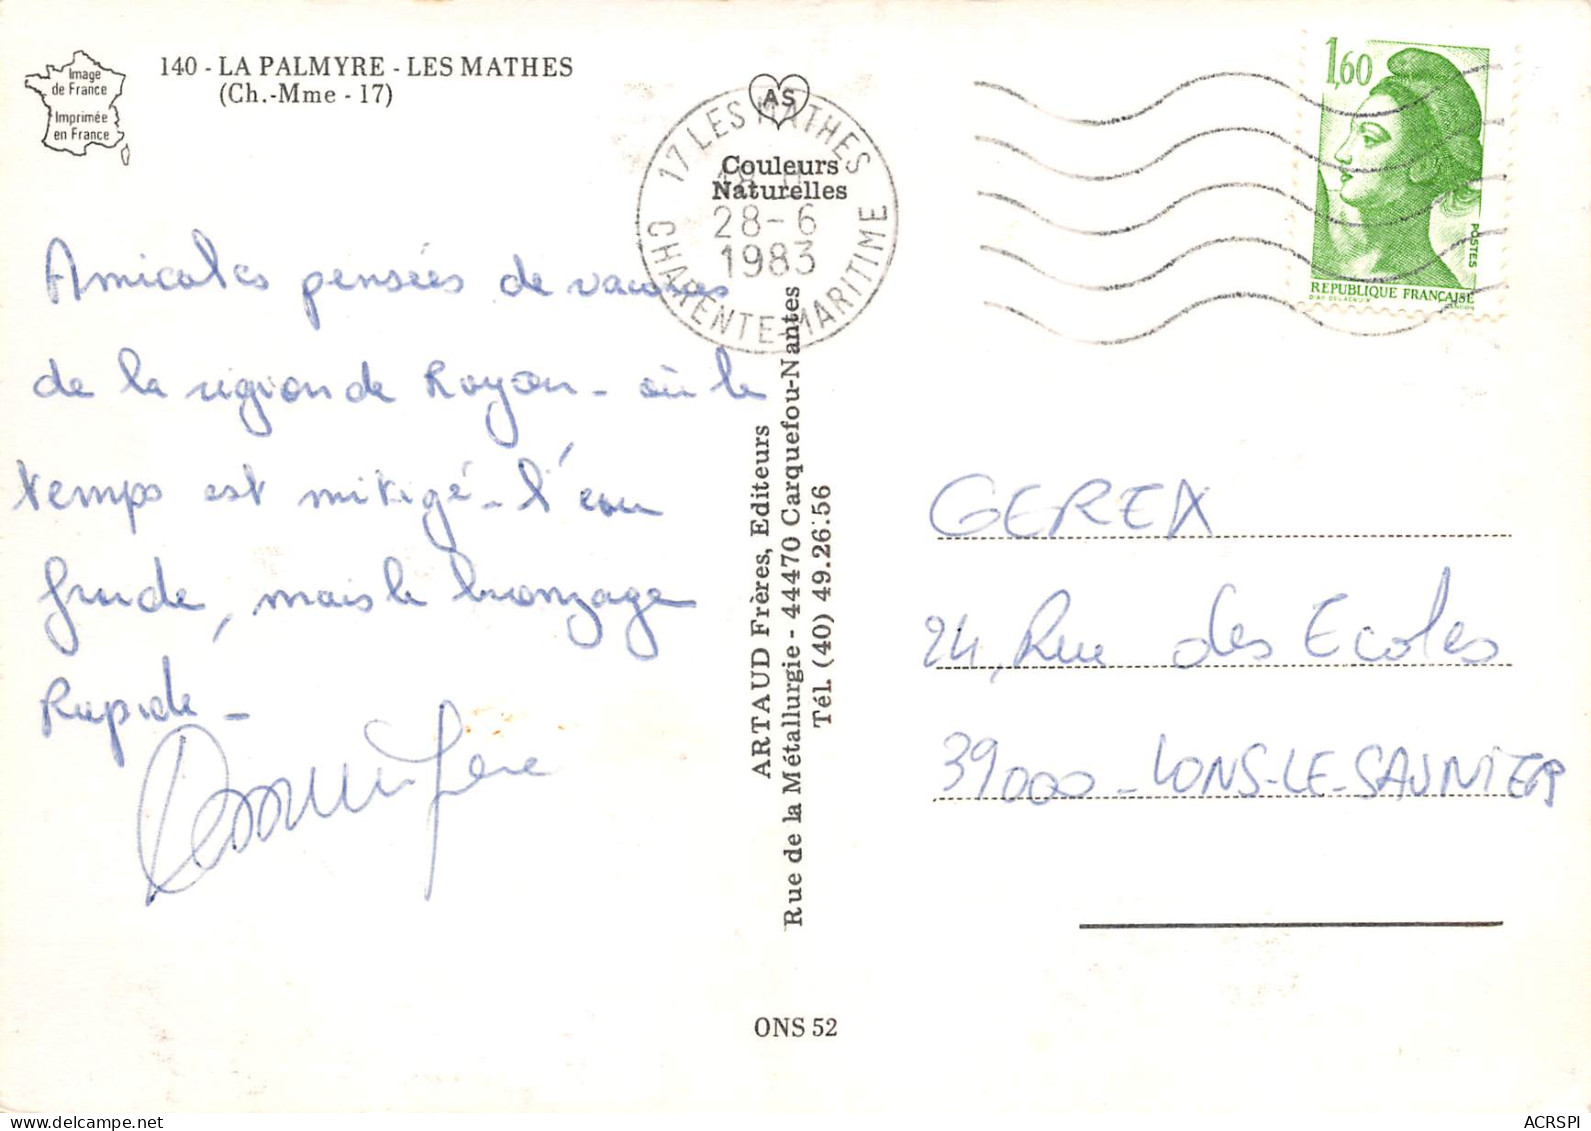 Image
de France
Imprimée
en France
140 - LA PALMYRE - LES MATHES
(Ch.-Mme - 17)
AS
Couleurs
Naturelles
17 LES MATHES
28-6
1983
CHARENTE-MARITIME
1,60
POSTES
REPUBLIQUE FRANÇAISE
Amicales pensées de vacances
de la région de Royan - où le
temps est mitigé - l'eau
froide, mais le bronzage
Rapide -
ARTAUD Frères, Editeurs
Rue de la Métallurgie - 44470 Carquefou-Nantes
Tél. (40) 49.26.56
GEREX
24, Rue des Ecoles
39000 - LONS-LE-SAUNIER
ONS 52
ACRSPI